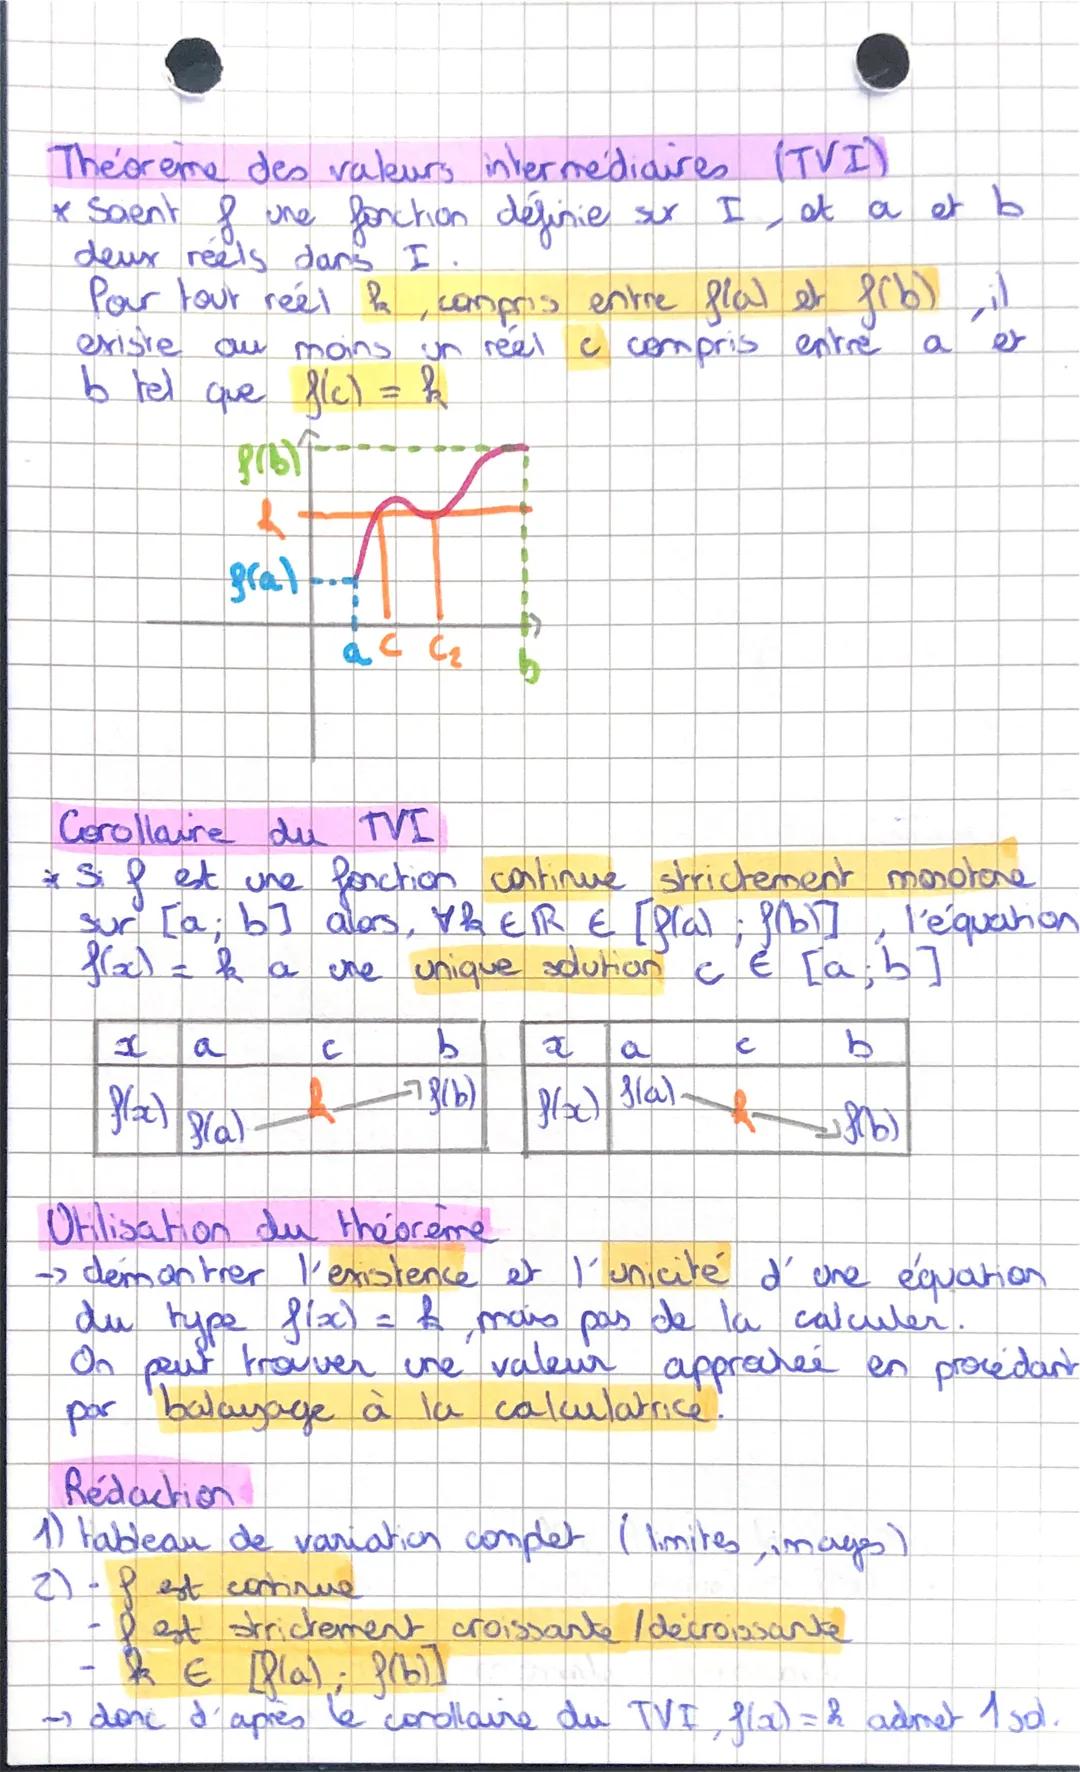 Théorème des valeurs intermédiaires (TVI)
* Soient f une fonction définie sur I, et a et b
deux réels dans I.
Pour tout réel k, compris entre f(a) et f(b), il
existe au moins un réel c compris entre a et
b tel que f(c) = k
f(b)
k
f(a)
a c c₂ b
Corollaire du TVI
* Si f est une fonction continue strictement monotone
sur [a; b] alors, ∀k ∈ ℝ ∈ [f(a) ; f(b)], l'équation
f(x) = k a une unique solution c ∈ [a;b]
x a c b
f(x) f(a) k f(b)
x a c b
f(x) f(a) k f(b)
Utilisation du théorème
-> démontrer l'existence et l'unicité d'une équation
du type f(x) = k, mais pas de la calculer.
On peut trouver une valeur approchée en procédant
par balayage à la calculatrice.
Rédaction
1) tableau de variation complet (limites, images)
2) - f est continue
- f est strictement croissante / décroissante
- k ∈ [f(a) ; f(b)]
-> donc d'après le corollaire du TVI, f(x) = k admet 1 sol.